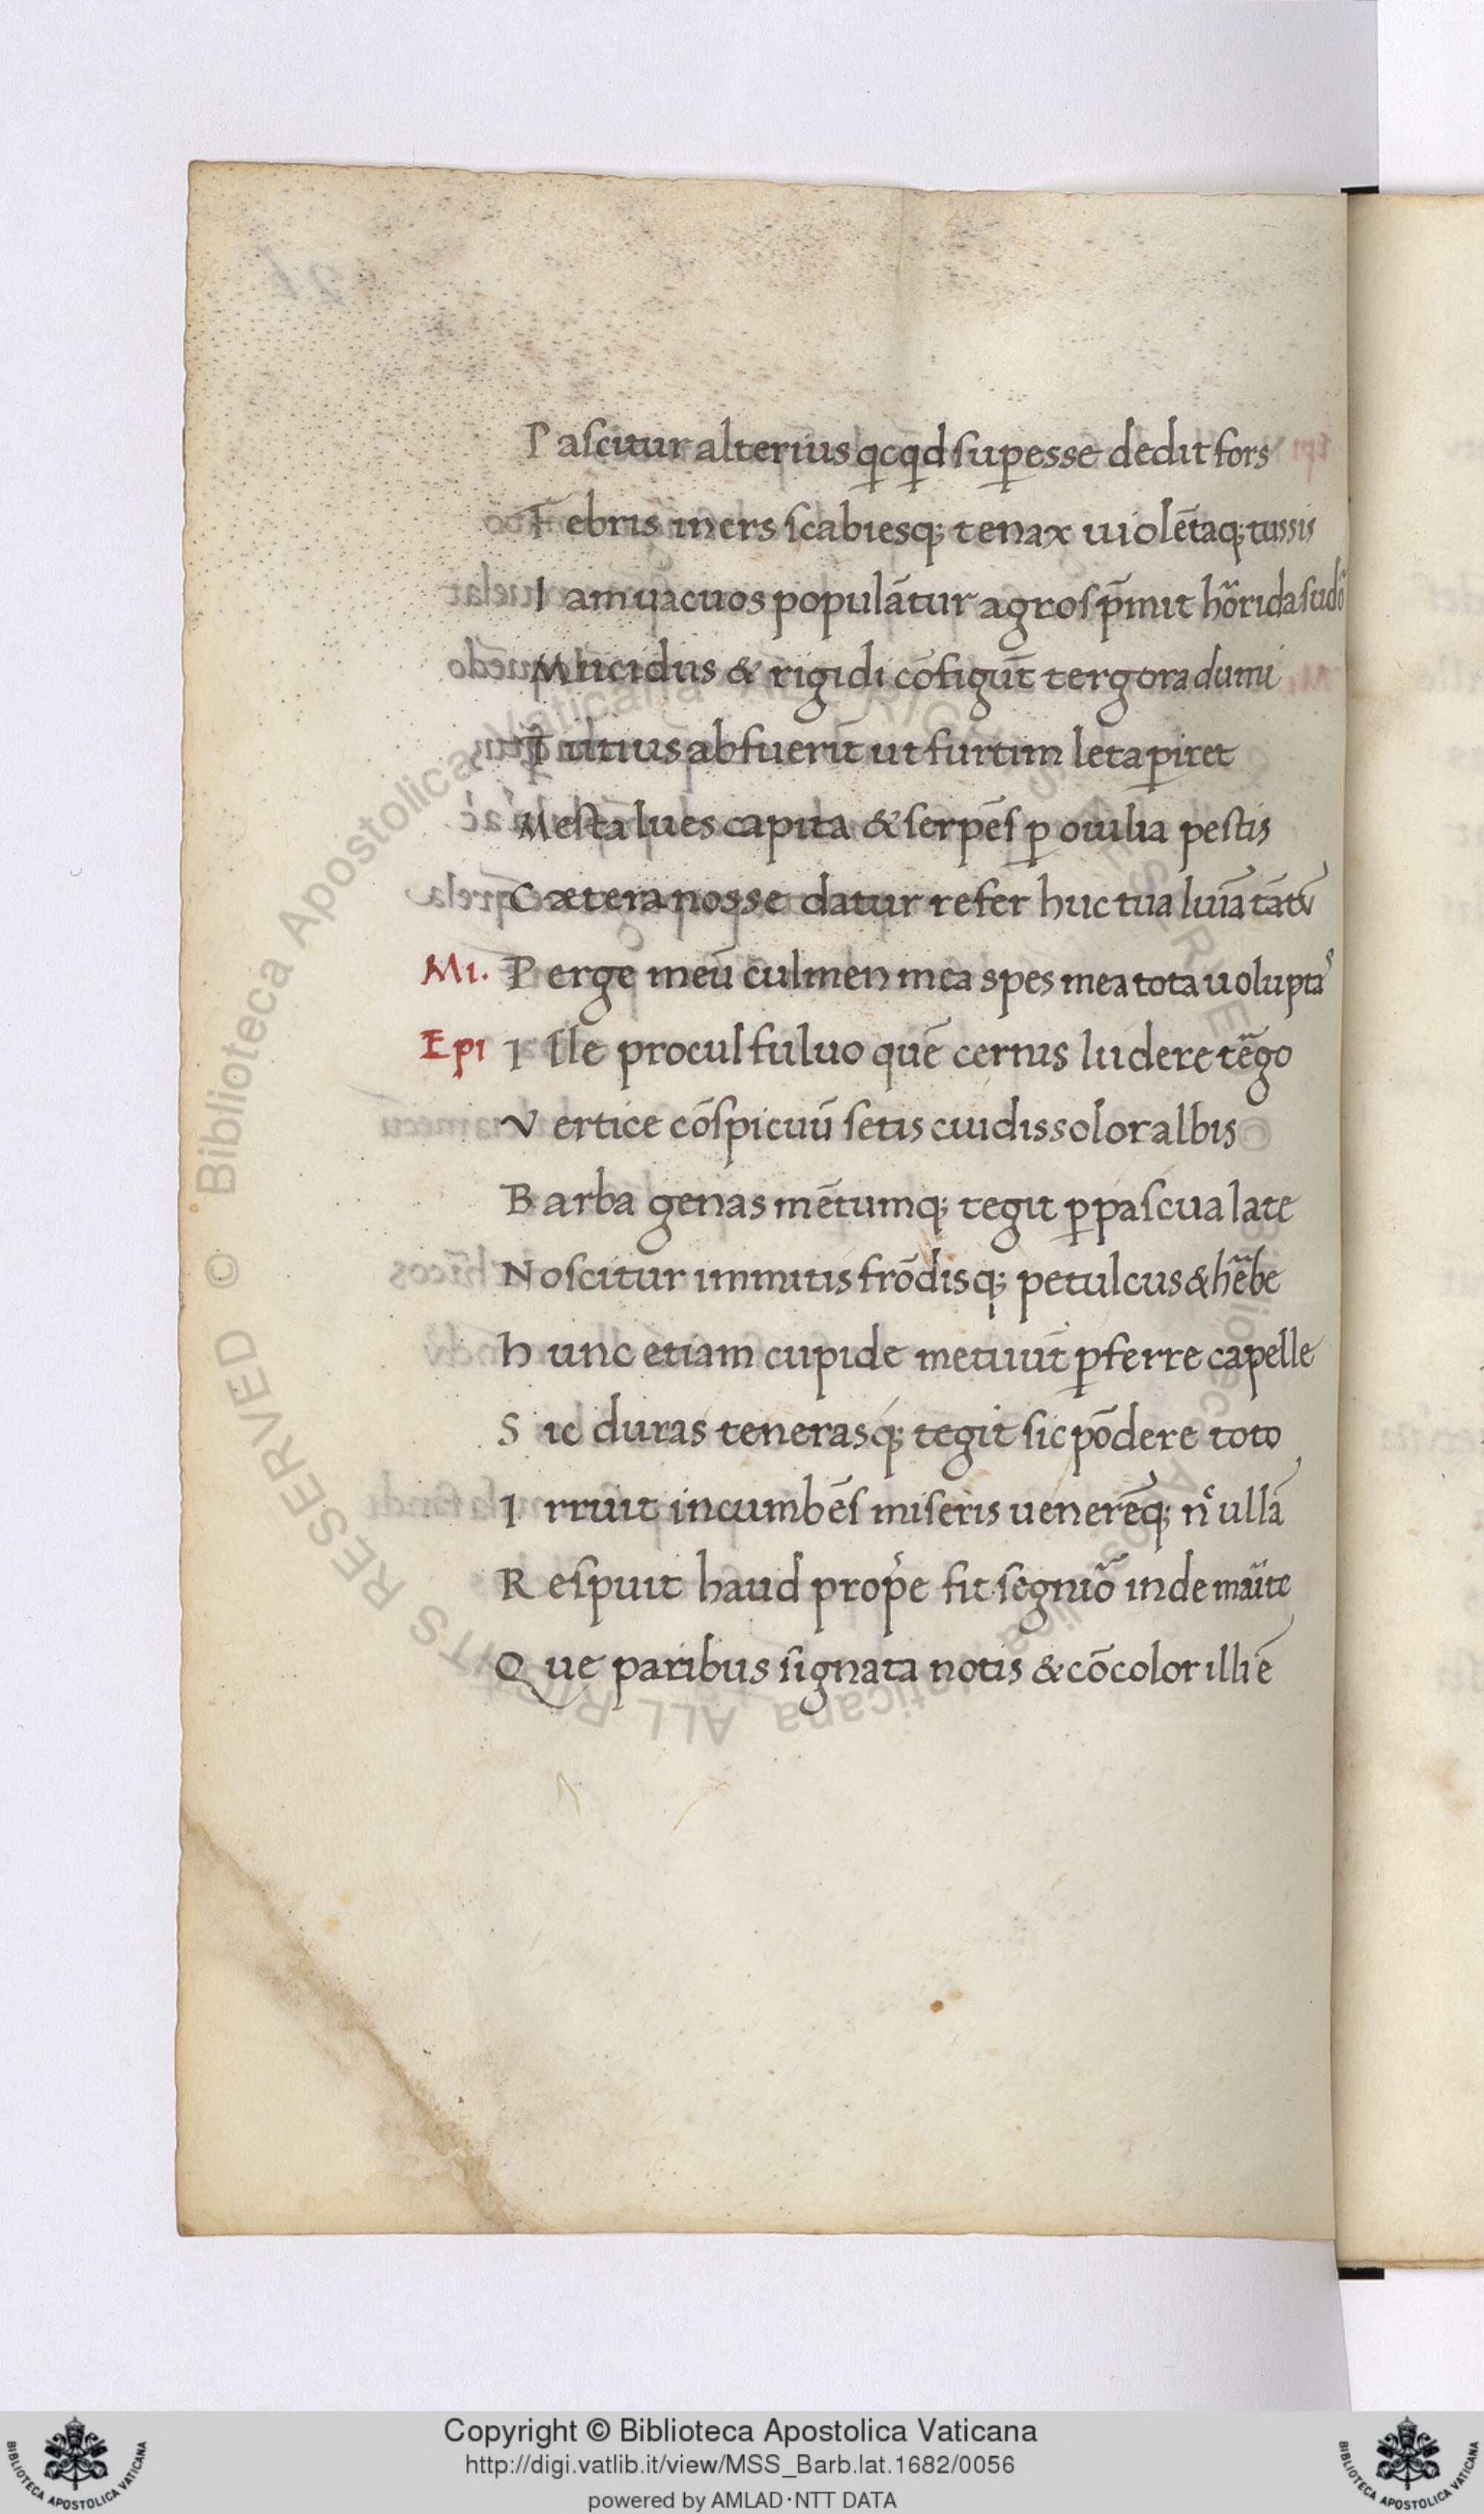 Pascitur alterius qcqd superesse dedit fors
Febris iners scabiesq; tenax uiolētaq; tussis
Iam uacuos populātur agros p̄mit hōrida sudō
Mucidus & rigidi cōfigūt tergora dumi
Tutius abfuerīt ut furtim leta piret
Mesta lues capita & serpēs p ouilia pestis
Cætera nosse datur refer huc tua lumīa tātū
Mi. Perge meū culmen mea spes mea tota uolupta᷒
Epi Ille procul fuluo quē cernis ludere tērgo
Vertice cōspicuū setis cui dissolor albis
Barba genas mētumq; tegit p pascua late
Noscitur immitis frōdisq; petulcus & hērbe
Hunc etiam cupide metuūt pferre capelle
Sic duras tenerasq; tegit sic pōdere toto
Irruit incumbēs miseris uenerēq; nͨ ullā
Respuit haud prop̄e fit segniō inde marite
Que paribus signata notis & cōcolor illi ē
Copyright © Biblioteca Apostolica Vaticana
http://digi.vatlib.it/view/MSS_Barb.lat.1682/0056
powered by AMLAD·NTT DATA